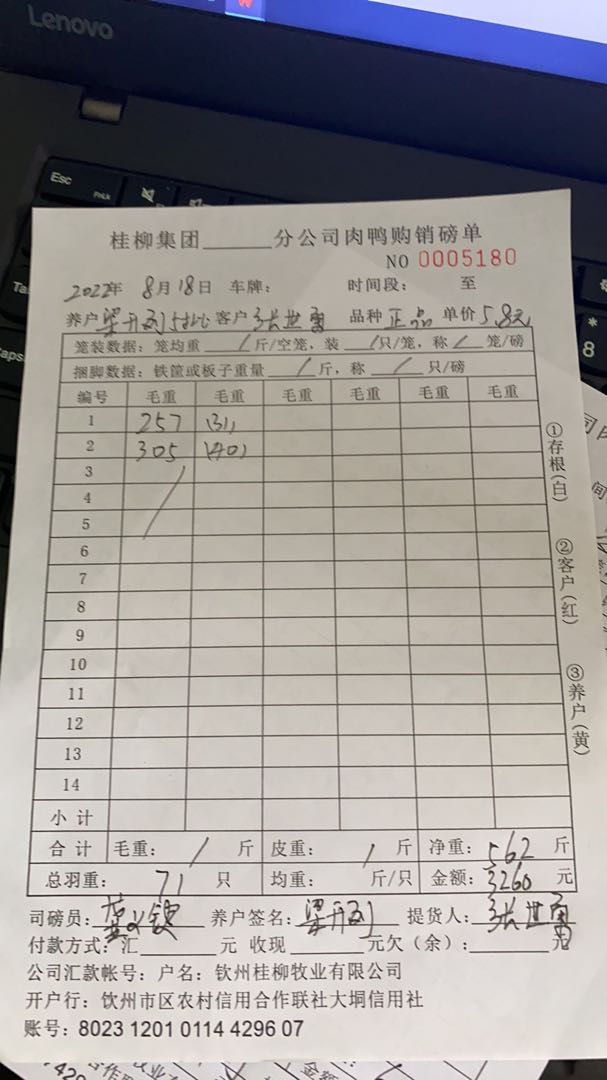 Lenovo
Esc
FnLk
桂柳集团______分公司肉鸭购销磅单
NO 0005180
2022年 8月18日 车牌: 时间段: 至
养户 梁开利 5批 客户 张世勇 品种 正品 单价 5.8元
笼装数据: 笼均重 / 斤/空笼, 装 / 只/笼, 称 / 笼/磅
捆脚数据: 铁筐或板子重量 / 斤, 称 / 只/磅
编号 毛重 毛重 毛重 毛重 毛重 毛重
1 257 (31)
2 305 (40)
3
4
5
6
7
8
9
10
11
12
13
14
小计
合计 毛重: / 斤 皮重: / 斤 净重: 562 斤
总羽重: 71 只 均重: 斤/只 金额: 3260 元
司磅员: 养户签名: 梁开利 提货人: 张世勇
付款方式: 汇______元 收现______元欠(余):______元
公司汇款帐号: 户名: 钦州桂柳牧业有限公司
开户行: 钦州市区农村信用合作联社大垌信用社
账号: 8023 1201 0114 4296 07
①存根(白)
②客户(红)
③养户(黄)
8